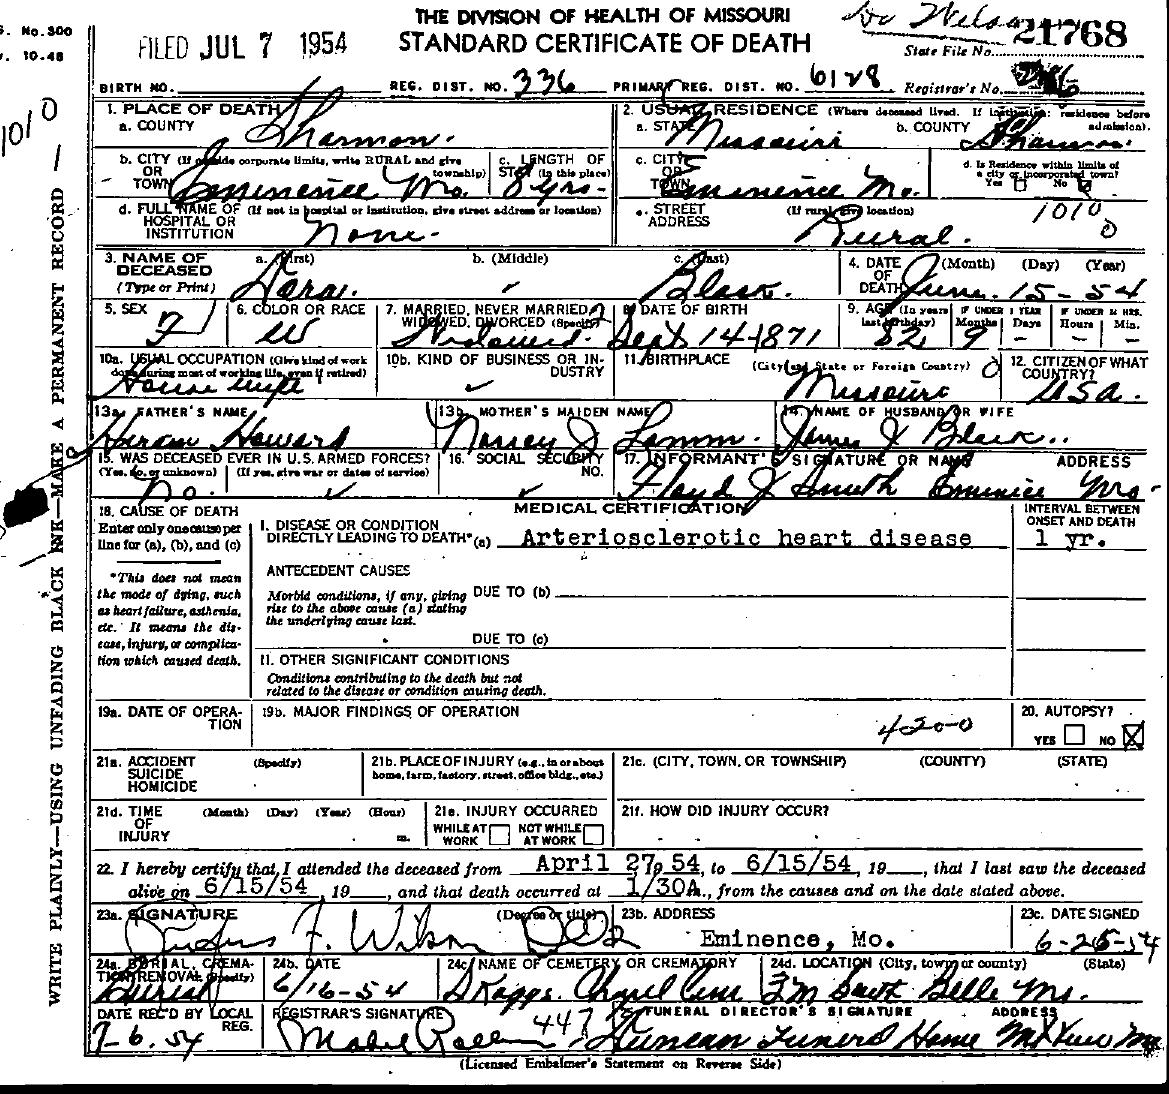 THE DIVISION OF HEALTH OF MISSOURI
STANDARD CERTIFICATE OF DEATH
S. No. 300
10-48
FILED JUL 7 1954
State File No. 21768
BIRTH NO. REG. DIST. NO. 336 PRIMARY REG. DIST. NO. 6128 Registrar's No.
1010
1. PLACE OF DEATH
a. COUNTY Shannon.
2. USUAL RESIDENCE (Where deceased lived. If institution: residence before admission).
a. STATE Missouri b. COUNTY Shannon.
b. CITY (If outside corporate limits, write RURAL and give township) OR TOWN Eminence Mo.
c. LENGTH OF STAY (In this place) 8 yrs.
c. CITY OR TOWN Eminence Mo.
d. Is Residence within limits of a city or incorporated town? Yes No
d. FULL NAME OF (If not in hospital or institution, give street address or location) HOSPITAL OR INSTITUTION None.
e. STREET ADDRESS (If rural, give location) Rural.
1010
0
3. NAME OF DECEASED (Type or Print)
a. (First) b. (Middle) c. (Last) Black.
4. DATE OF DEATH (Month) (Day) (Year) June 15-54
5. SEX F
6. COLOR OR RACE W
7. MARRIED, NEVER MARRIED, WIDOWED, DIVORCED (Specify) Widowed.
8. DATE OF BIRTH Sept 14-1871
9. AGE (In years last birthday) 82
IF UNDER 1 YEAR Months 9 Days -
IF UNDER 24 HRS. Hours - Min. -
10a. USUAL OCCUPATION (Give kind of work done during most of working life, even if retired) House wife
10b. KIND OF BUSINESS OR INDUSTRY
11. BIRTHPLACE (City and State or Foreign Country) Missouri
12. CITIZEN OF WHAT COUNTRY? USA.
13a. FATHER'S NAME Hiram Howard
13b. MOTHER'S MAIDEN NAME Nancy J Lamm.
14. NAME OF HUSBAND OR WIFE James J Black.
15. WAS DECEASED EVER IN U.S. ARMED FORCES? (Yes, no, or unknown) (If yes, give war or dates of service) No.
16. SOCIAL SECURITY NO.
17. INFORMANT'S SIGNATURE OR NAME ADDRESS
Floyd J Smith Eminence Mo-
MEDICAL CERTIFICATION
INTERVAL BETWEEN ONSET AND DEATH
18. CAUSE OF DEATH
Enter only one cause per line for (a), (b), and (c)
I. DISEASE OR CONDITION DIRECTLY LEADING TO DEATH* (a) Arteriosclerotic heart disease 1 yr.
*This does not mean the mode of dying, such as heart failure, asthenia, etc. It means the disease, injury, or complication which caused death.
ANTECEDENT CAUSES
Morbid conditions, if any, giving rise to the above cause (a) stating the underlying cause last.
DUE TO (b)
DUE TO (c)
II. OTHER SIGNIFICANT CONDITIONS
Conditions contributing to the death but not related to the disease or condition causing death.
19a. DATE OF OPERATION
19b. MAJOR FINDINGS OF OPERATION
4200
20. AUTOPSY? YES NO
21a. ACCIDENT SUICIDE HOMICIDE (Specify)
21b. PLACE OF INJURY (e.g., in or about home, farm, factory, street, office bldg., etc.)
21c. (CITY, TOWN, OR TOWNSHIP) (COUNTY) (STATE)
21d. TIME OF INJURY (Month) (Day) (Year) (Hour) m.
21e. INJURY OCCURRED WHILE AT WORK NOT WHILE AT WORK
21f. HOW DID INJURY OCCUR?
22. I hereby certify that I attended the deceased from April 27, 54, to 6/15/54, 19, that I last saw the deceased
alive on 6/15/54, 19, and that death occurred at 1/30A., from the causes and on the date stated above.
23a. SIGNATURE (Degree or title) Rufus F. Wilson
23b. ADDRESS Eminence, Mo.
23c. DATE SIGNED 6-25-54
24a. BURIAL, CREMATION, REMOVAL (Specify) Burial
24b. DATE 6/16-54
24c. NAME OF CEMETERY OR CREMATORY Skaggs Chapel Cem
24d. LOCATION (City, town or county) (State) 3 M South Belle Mo.
DATE REC'D BY LOCAL REG. 7-6.54
REGISTRAR'S SIGNATURE Mabel
447
25. FUNERAL DIRECTOR'S SIGNATURE ADDRESS
Duncan Funeral Home Mt View Mo
(Licensed Embalmer's Statement on Reverse Side)
WRITE PLAINLY—USING UNFADING BLACK INK—MAKE A PERMANENT RECORD